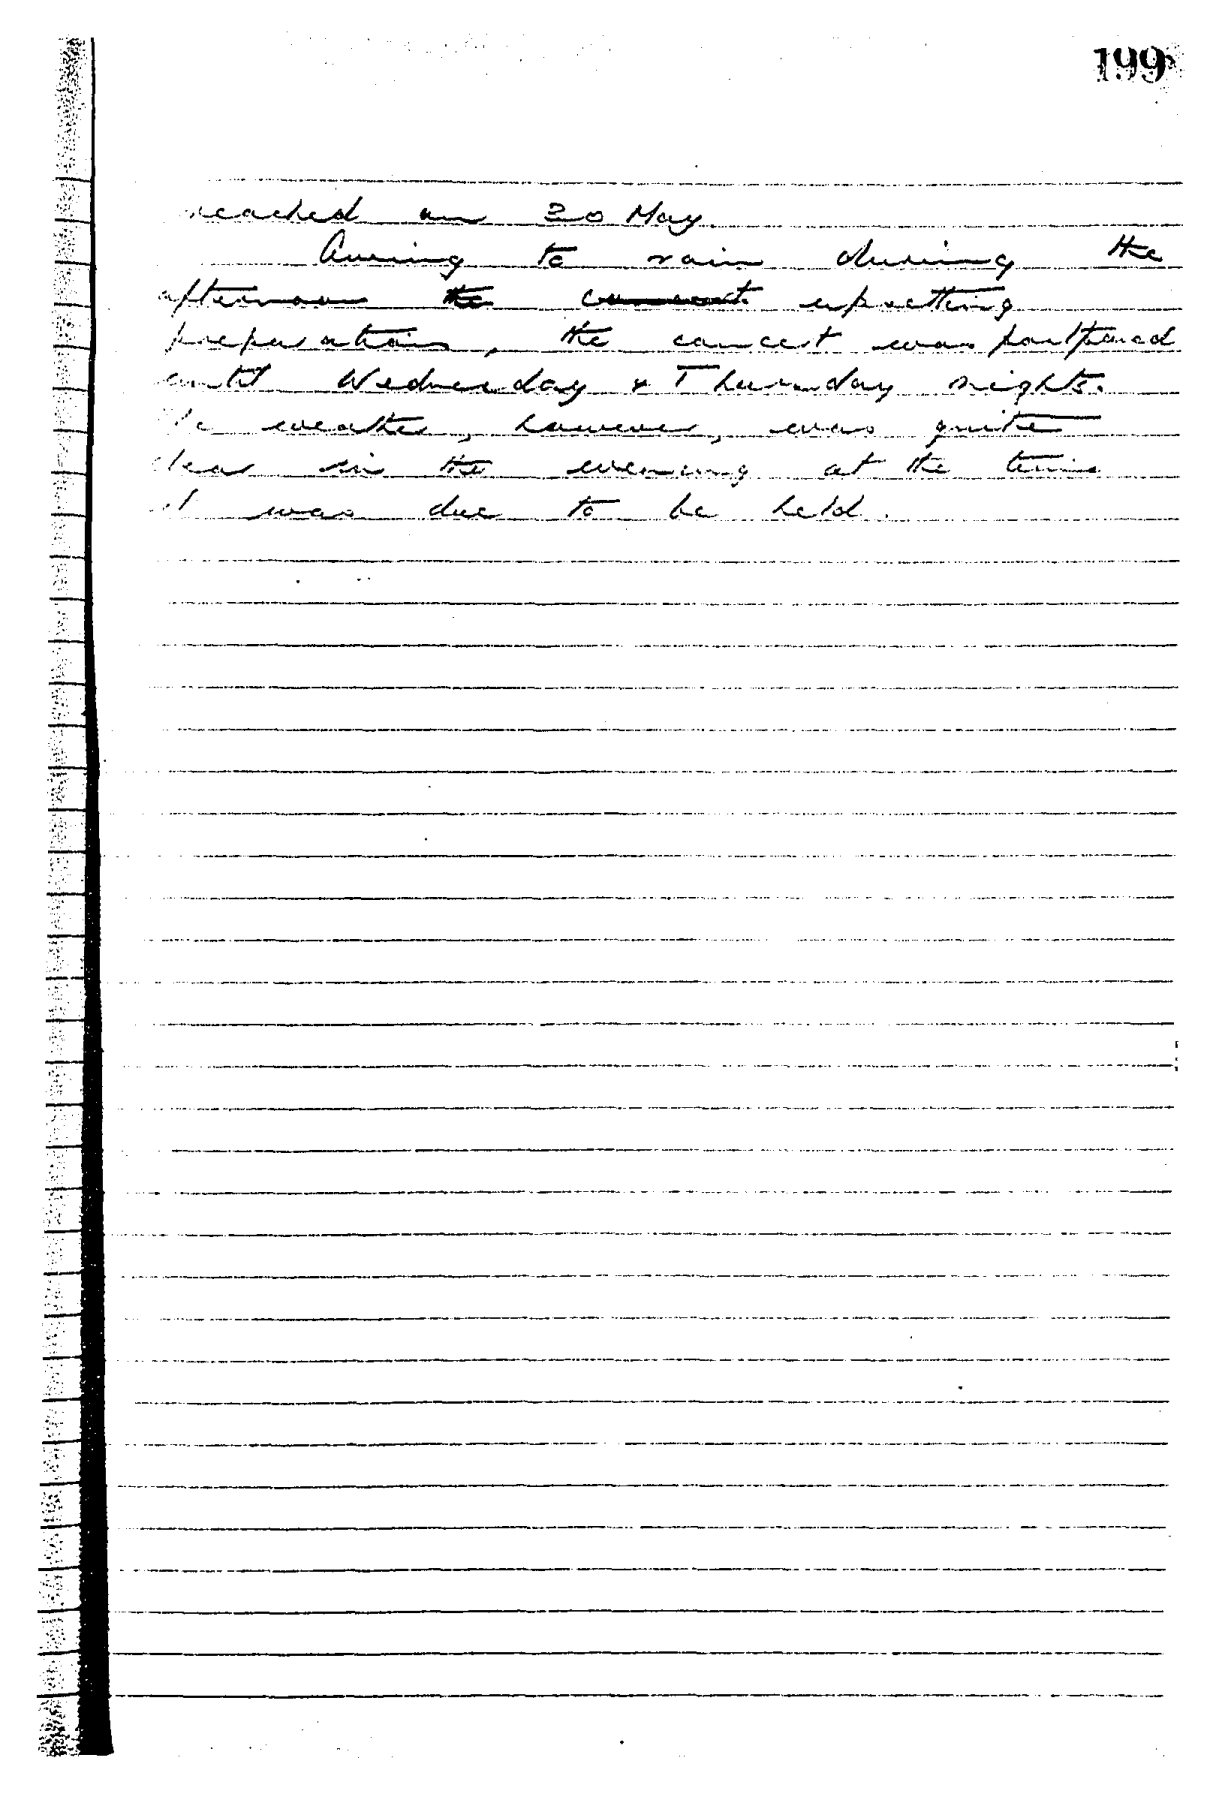 199
reached on 20 May
Owing to rain during the
afternoon the concert upsetting
preparations, the concert was postponed
until Wednesday & Thursday nights.
The weather, however, was quite
clear in the evening at the time
it was due to be held.